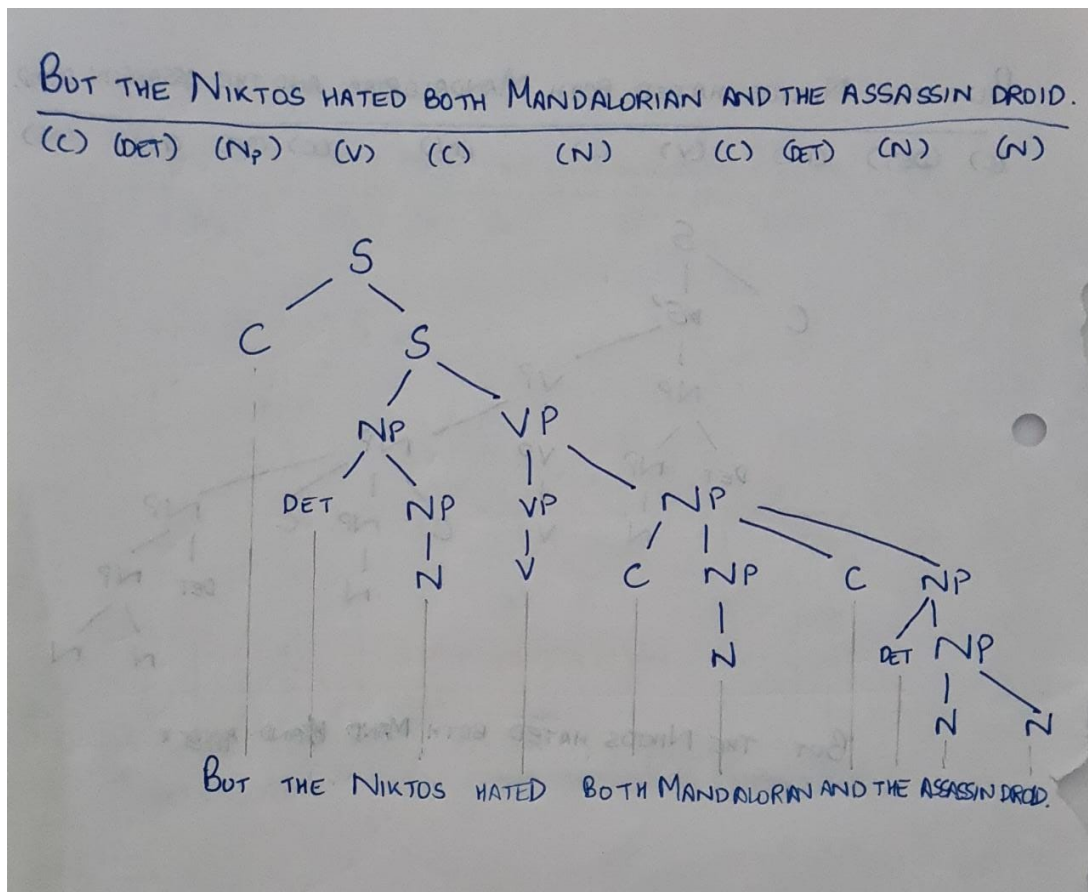 BUT THE NIKTOS HATED BOTH MANDALORIAN AND THE ASSASSIN DROID.
(C) (DET) (NP) (V) (C) (N) (C) (DET) (N) (N)
S
C S
NP VP
DET NP VP NP
N V C NP C NP
N DET NP
N N
BUT THE NIKTOS HATED BOTH MANDALORAN AND THE ASSASSIN DROID.